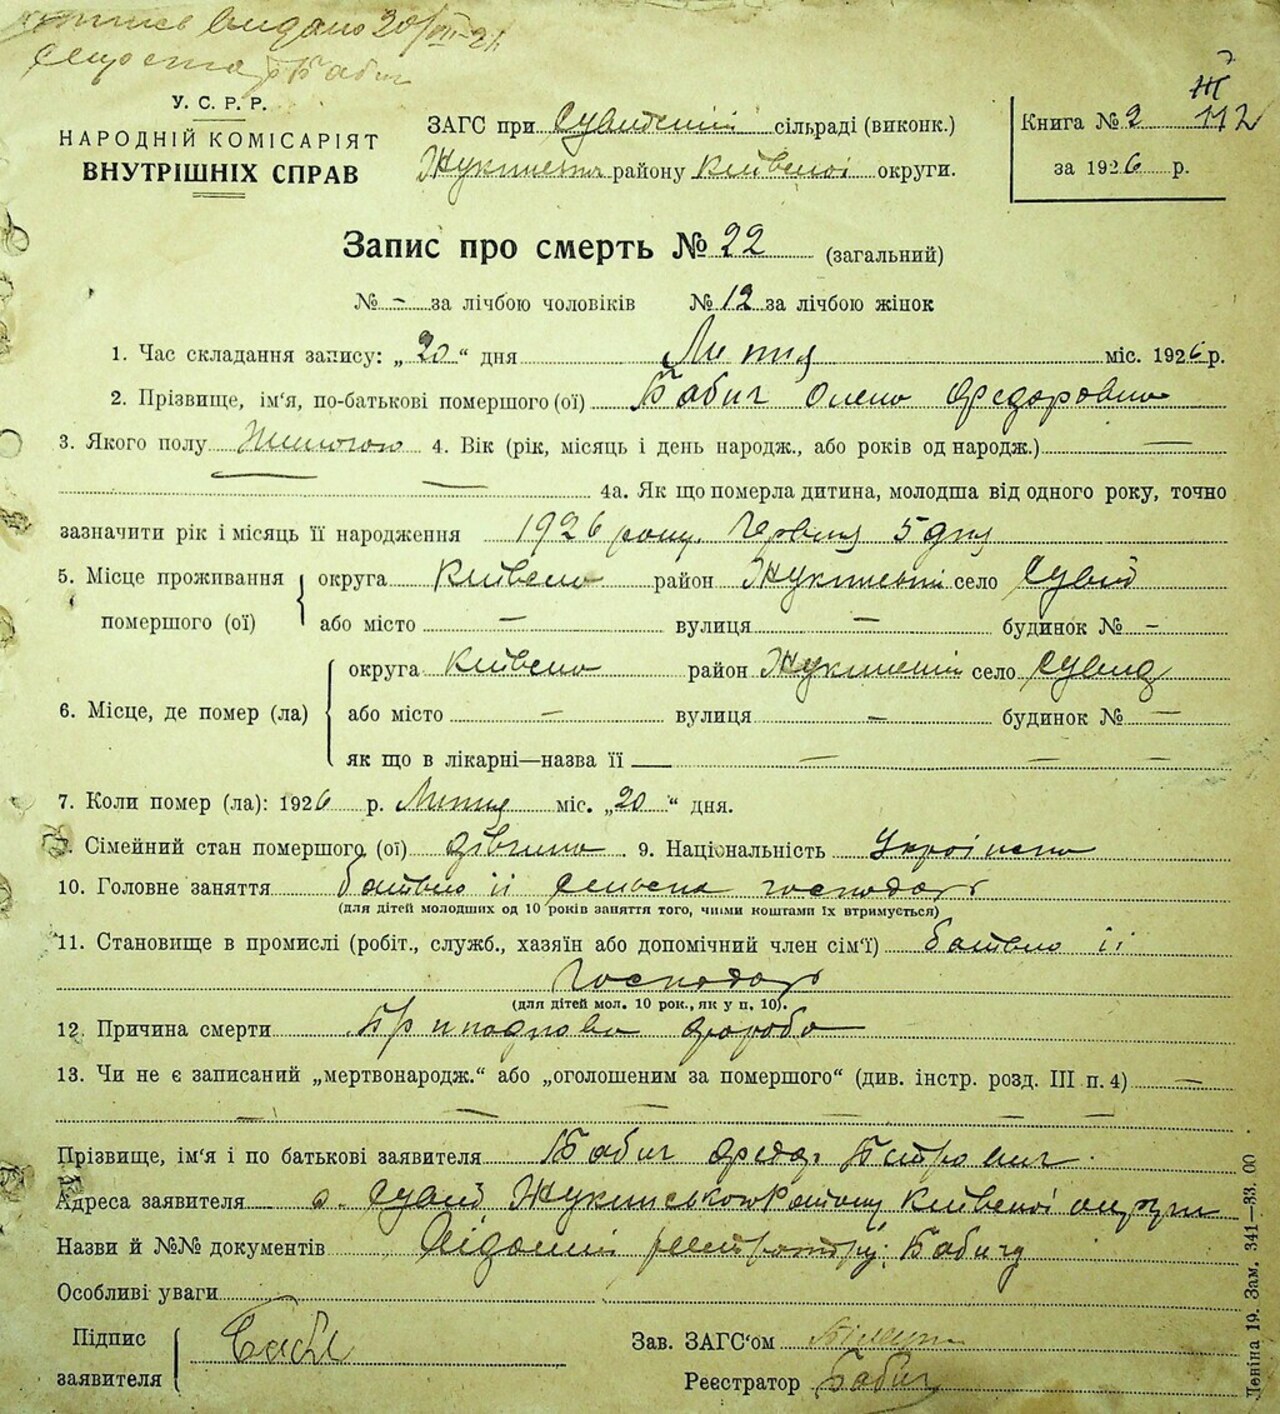 видано 20/VII-26
Бабич
У. С. Р. Р.
НАРОДНІЙ КОМІСАРІЯТ
ВНУТРІШНІХ СПРАВ
ЗАГС при Сувидській сільраді (виконк.)
Жукинського району Київської округи.
Книга № 2 112
за 1926 р.
Запис про смерть № 22 (загальний)
№ - за лічбою чоловіків № 12 за лічбою жінок
1. Час складання запису: „20“ дня Липня міс. 1926 р.
2. Прізвище, ім‘я, по-батькові помершого (ої) Бабич Олена Федоровна
3. Якого полу Жиночого 4. Вік (рік, місяць і день народж., або років од народж.) —
— 4а. Як що померла дитина, молодша від одного року, точно
зазначити рік і місяць її народження 1926 року. Червня 5 дня
5. Місце проживання помершого (ої)
округа Київська район Жукинській село Сувид
або місто — вулиця — будинок № -
6. Місце, де помер (ла)
округа Київська район Жукинській село Сувид
або місто — вулиця — будинок № —
як що в лікарні—назва її — — —
7. Коли помер (ла): 1926 р. Липня міс. „20“ дня.
8. Сімейний стан помершого (ої) дівчина. 9. Національність Украінська
10. Головне заняття батько іі сельський господарь
(для дітей молодших од 10 років заняття того, чиїми коштами їх втримується)
11. Становище в промислі (робіт., служб., хазяїн або допомічний член сім‘ї) батько іі
господарь
(для дітей мол. 10 рок., як у п. 10).
12. Причина смерти хороба
13. Чи не є записаний „мертвонародж.“ або „оголошеним за помершого“ (див. інстр. розд. III п. 4) —
— — — — — —
Прізвище, ім‘я і по батькові заявителя Бабич Федір
Адреса заявителя с. Сувид Жукинського Району Київської округи
Назви й №№ документів реєстратору: Бабичу
Особливі уваги
Підпис заявителя Бабич
Зав. ЗАГС‘ом
Реєстратор Бабич
Леніна 19. Зам. 341—33.00